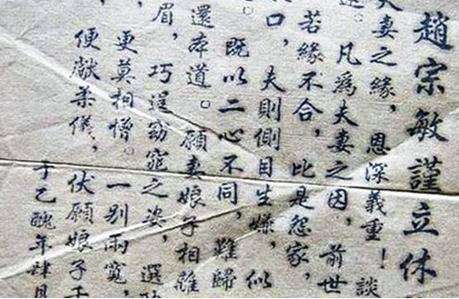 趙宗敏謹立休
夫妻之緣，恩深義重！談
。凡爲夫妻之因，前世
若緣不合，比是怨家，
口，夫則側目生嫌，似
。既以二心不同，難歸
還本道。願妻娘子相離
眉，巧逞窈窕之姿，選
，更莫相憎。一別兩寬，
便獻柔儀，伏願娘子千
于乙醜年肆月